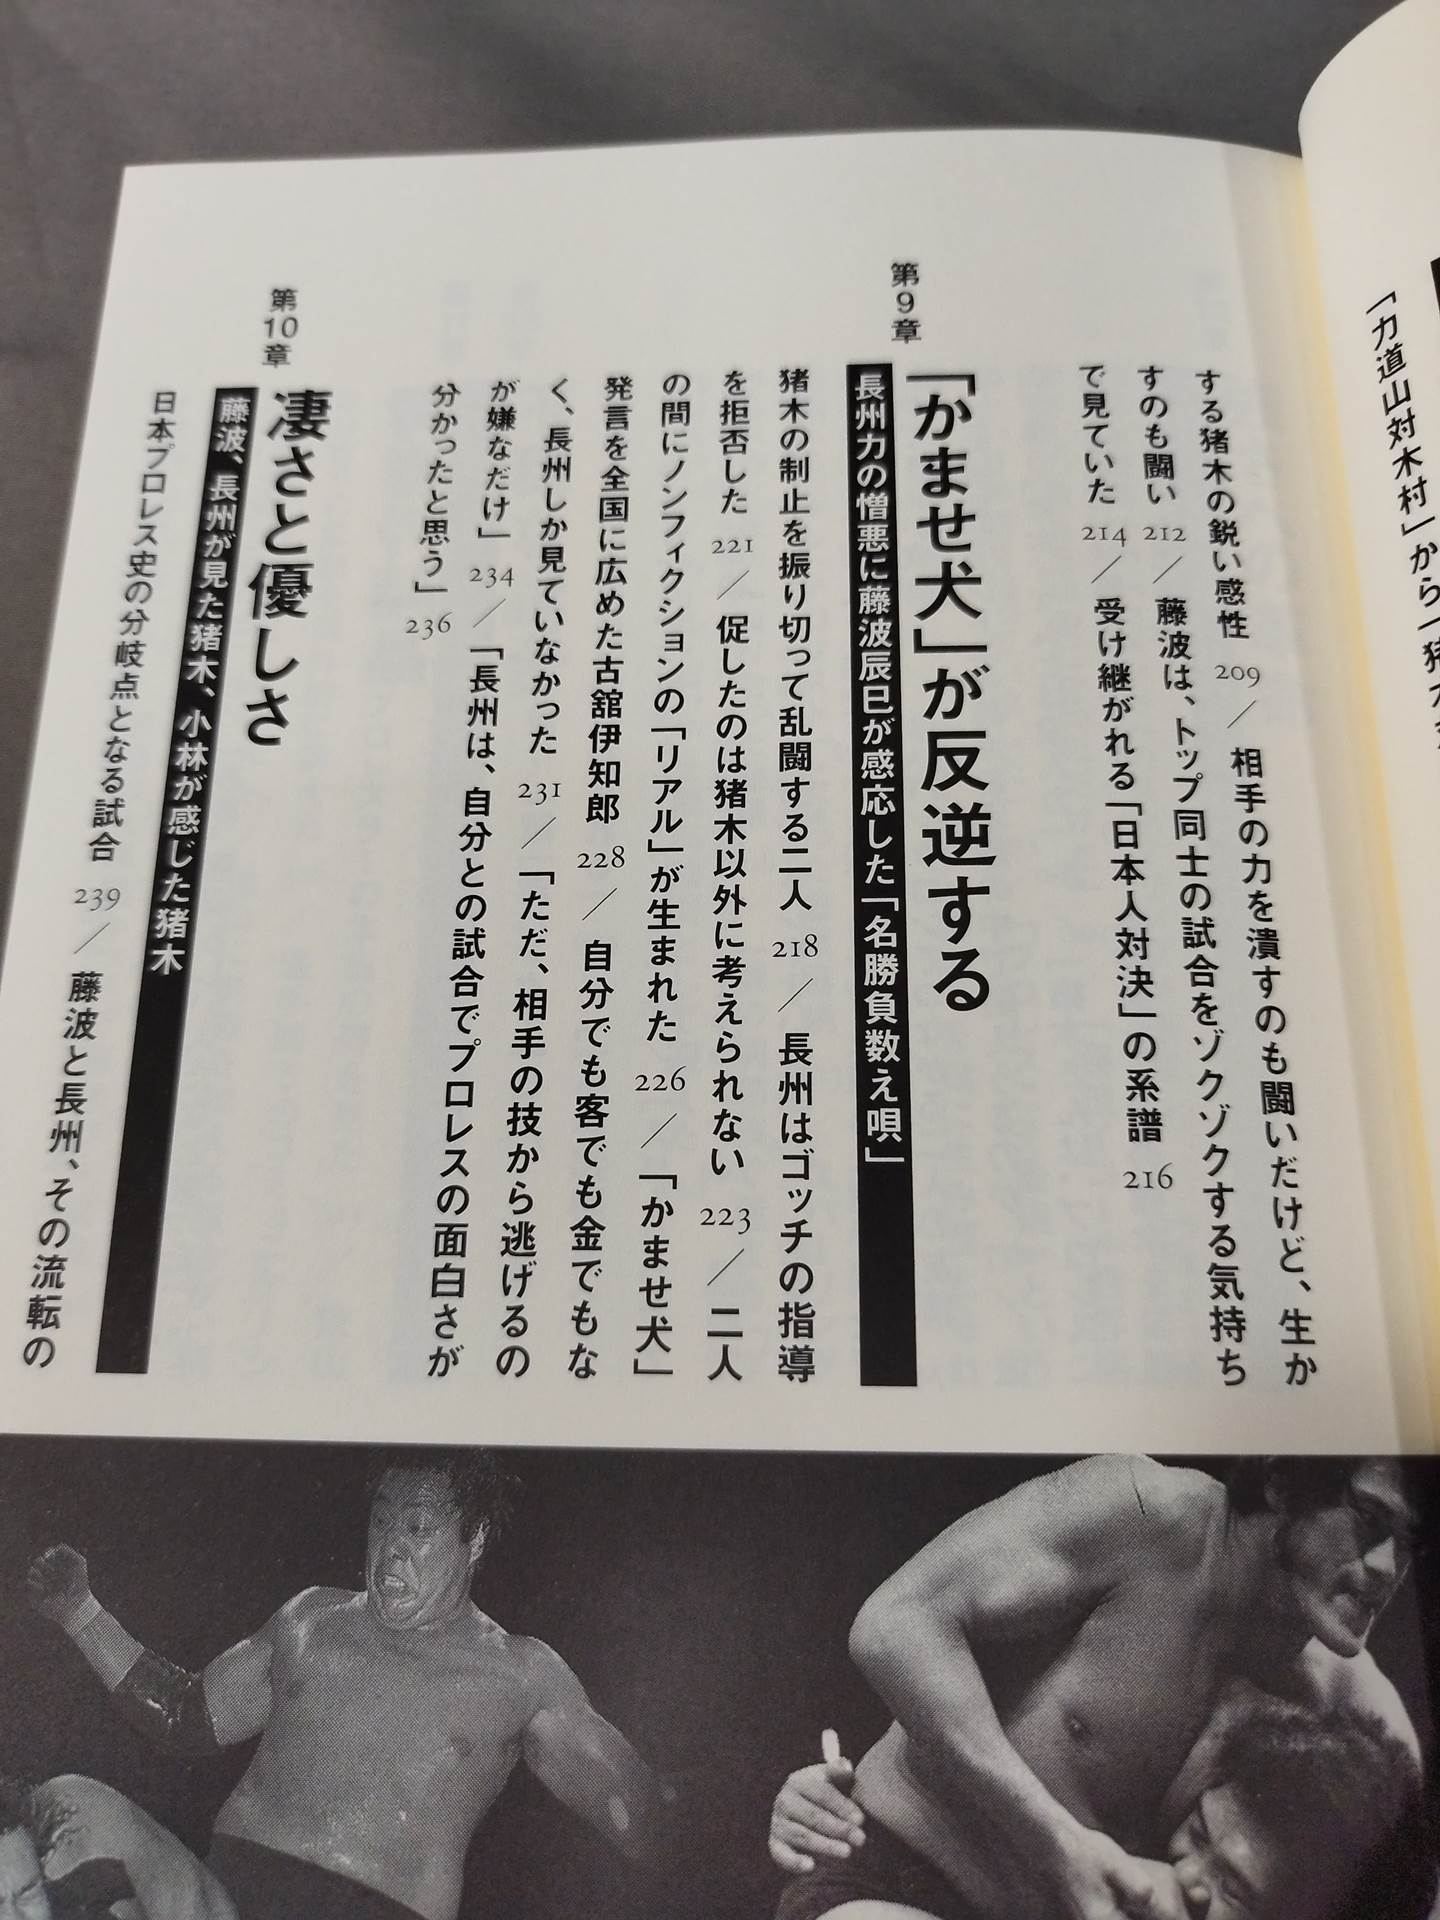 「力道山対木村」から「猪木対
する猪木の鋭い感性 209／相手の力を潰すのも闘いだけど、生か
すのも闘い 212／藤波は、トップ同士の試合をゾクゾクする気持ち
で見ていた 214／受け継がれる「日本人対決」の系譜 216
第9章
「かませ犬」が反逆する
長州力の憎悪に藤波辰巳が感応した「名勝負数え唄」
猪木の制止を振り切って乱闘する二人 218／長州はゴッチの指導
を拒否した 221／促したのは猪木以外に考えられない 223／二人
の間にノンフィクションの「リアル」が生まれた 226／「かませ犬」
発言を全国に広めた古舘伊知郎 228／自分でも客でも金でもな
く、長州しか見ていなかった 231／「ただ、相手の技から逃げるの
が嫌なだけ」 234／「長州は、自分との試合でプロレスの面白さが
分かったと思う」 236
第10章
凄さと優しさ
藤波、長州が見た猪木、小林が感じた猪木
日本プロレス史の分岐点となる試合 239／藤波と長州、その流転の